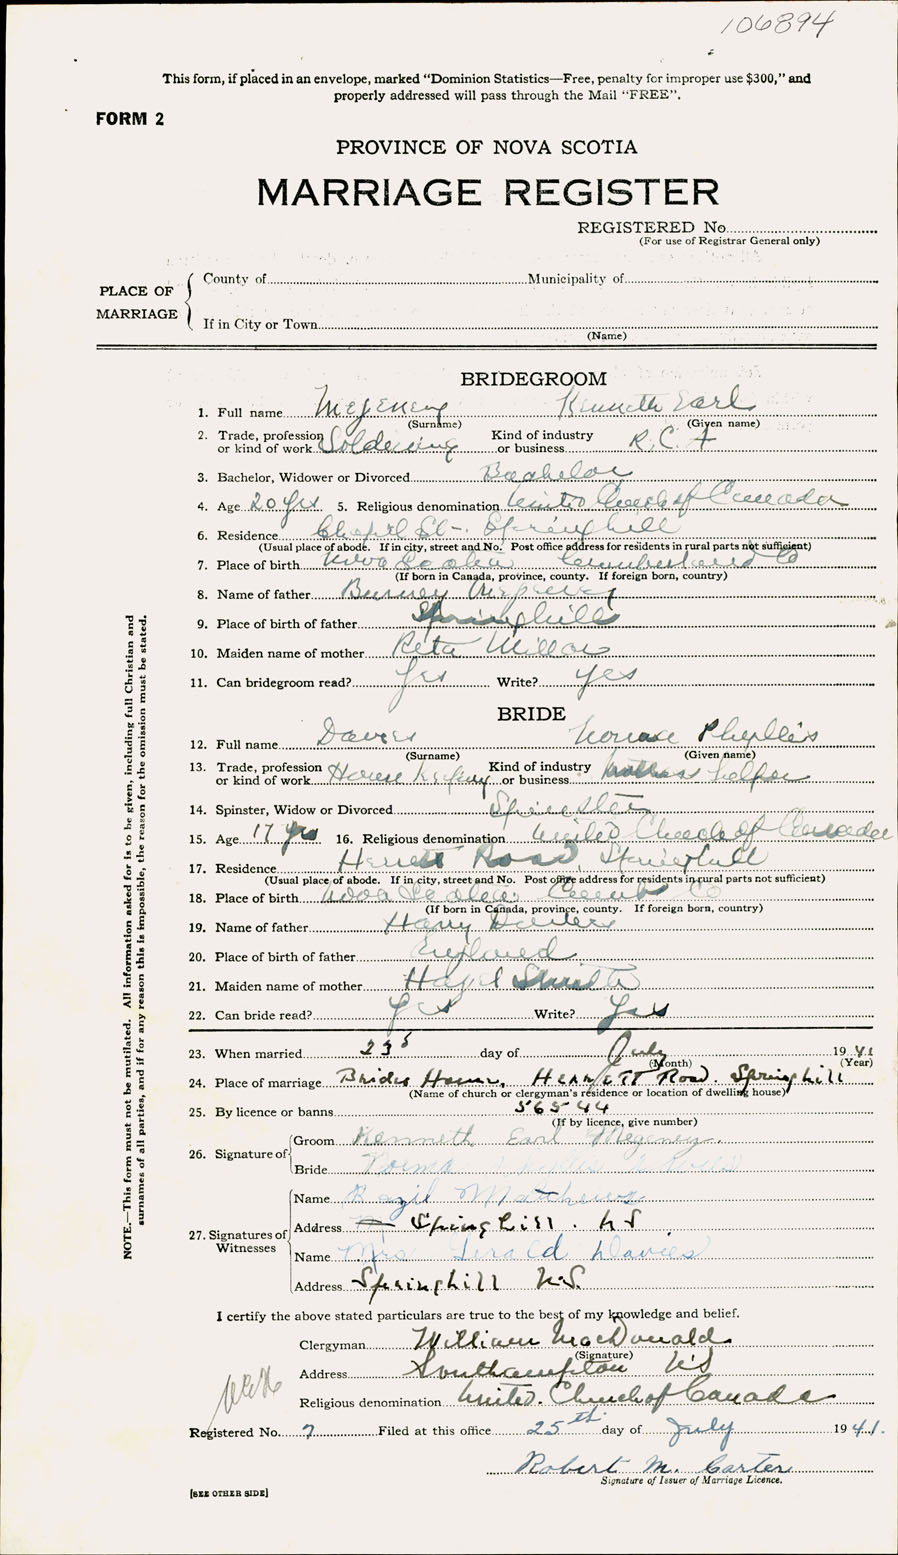 106894
This form, if placed in an envelope, marked "Dominion Statistics—Free, penalty for improper use $300," and
properly addressed will pass through the Mail "FREE".
FORM 2
PROVINCE OF NOVA SCOTIA
MARRIAGE REGISTER
REGISTERED No.
(For use of Registrar General only)
PLACE OF MARRIAGE
County of Municipality of
If in City or Town
(Name)
BRIDEGROOM
1. Full name Megeney Kenneth Earl
(Surname) (Given name)
2. Trade, profession or kind of work Soldering Kind of industry or business R.C.A
3. Bachelor, Widower or Divorced Bachelor
4. Age 20 yrs 5. Religious denomination United Church of Canada
6. Residence Chapel St-. Springhill
(Usual place of abode. If in city, street and No. Post office address for residents in rural parts not sufficient)
7. Place of birth Nova Scotia Cumberland Co
(If born in Canada, province, county. If foreign born, country)
8. Name of father Burney Megeney
9. Place of birth of father Springhill
10. Maiden name of mother Reta
11. Can bridegroom read? Yes Write? Yes
BRIDE
12. Full name Davies Norma Phyllis
(Surname) (Given name)
13. Trade, profession or kind of work House Keeping Kind of industry or business mothers helper
14. Spinster, Widow or Divorced Spinster
15. Age 17 yrs 16. Religious denomination United Church of Canada
17. Residence Herrett Road Springhill
(Usual place of abode. If in city, street and No. Post office address for residents in rural parts not sufficient)
18. Place of birth Nova Scotia Cumb Co
(If born in Canada, province, county. If foreign born, country)
19. Name of father Harry
20. Place of birth of father England
21. Maiden name of mother Hazel Smith
22. Can bride read? Yes Write? Yes
23. When married 23 day of July 1941
(Month) (Year)
24. Place of marriage Brides Home, Herrett Road. Springhill
(Name of church or clergyman's residence or location of dwelling house)
25. By licence or banns 56544
(If by licence, give number)
26. Signature of Groom Kenneth Earl Megeney.
Bride Norma Phyllis Davies
27. Signatures of Witnesses
Name Bazil Matthews
Address Springhill. NS
Name Mrs Gerald Davies
Address Springhill N.S.
I certify the above stated particulars are true to the best of my knowledge and belief.
Clergyman William MacDonald
(Signature)
Address Southampton NS
Religious denomination United. Church of Canada
Registered No. 7 Filed at this office 25th day of July 1941.
Robert M. Carter
Signature of Issuer of Marriage Licence.
[SEE OTHER SIDE]
NOTE.—This form must not be mutilated. All information asked for is to be given, including full Christian and
surnames of all parties, and if for any reason this is impossible, the reason for the omission must be stated.